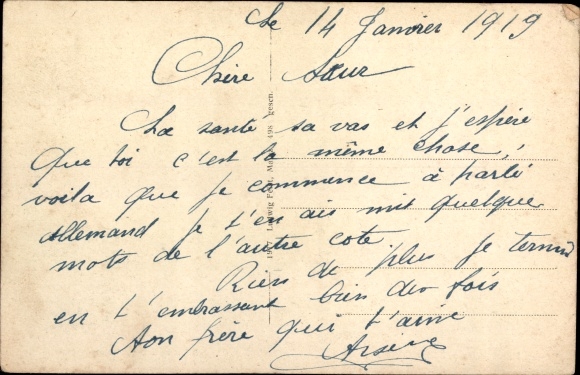 Le 14 Janvier 1919
Chère Sœur
La santé sa vas et j'espère
que toi c'est la même chose,
voila que je commence à parlé
allemand je t'en ais mit quelque
mots de l'autre cote.
Rien de plus je termine
en t'embrassant bien des fois
Ton frère qui t'aime
Arsène
Ludwig Feist, Mainz 498 gesch.